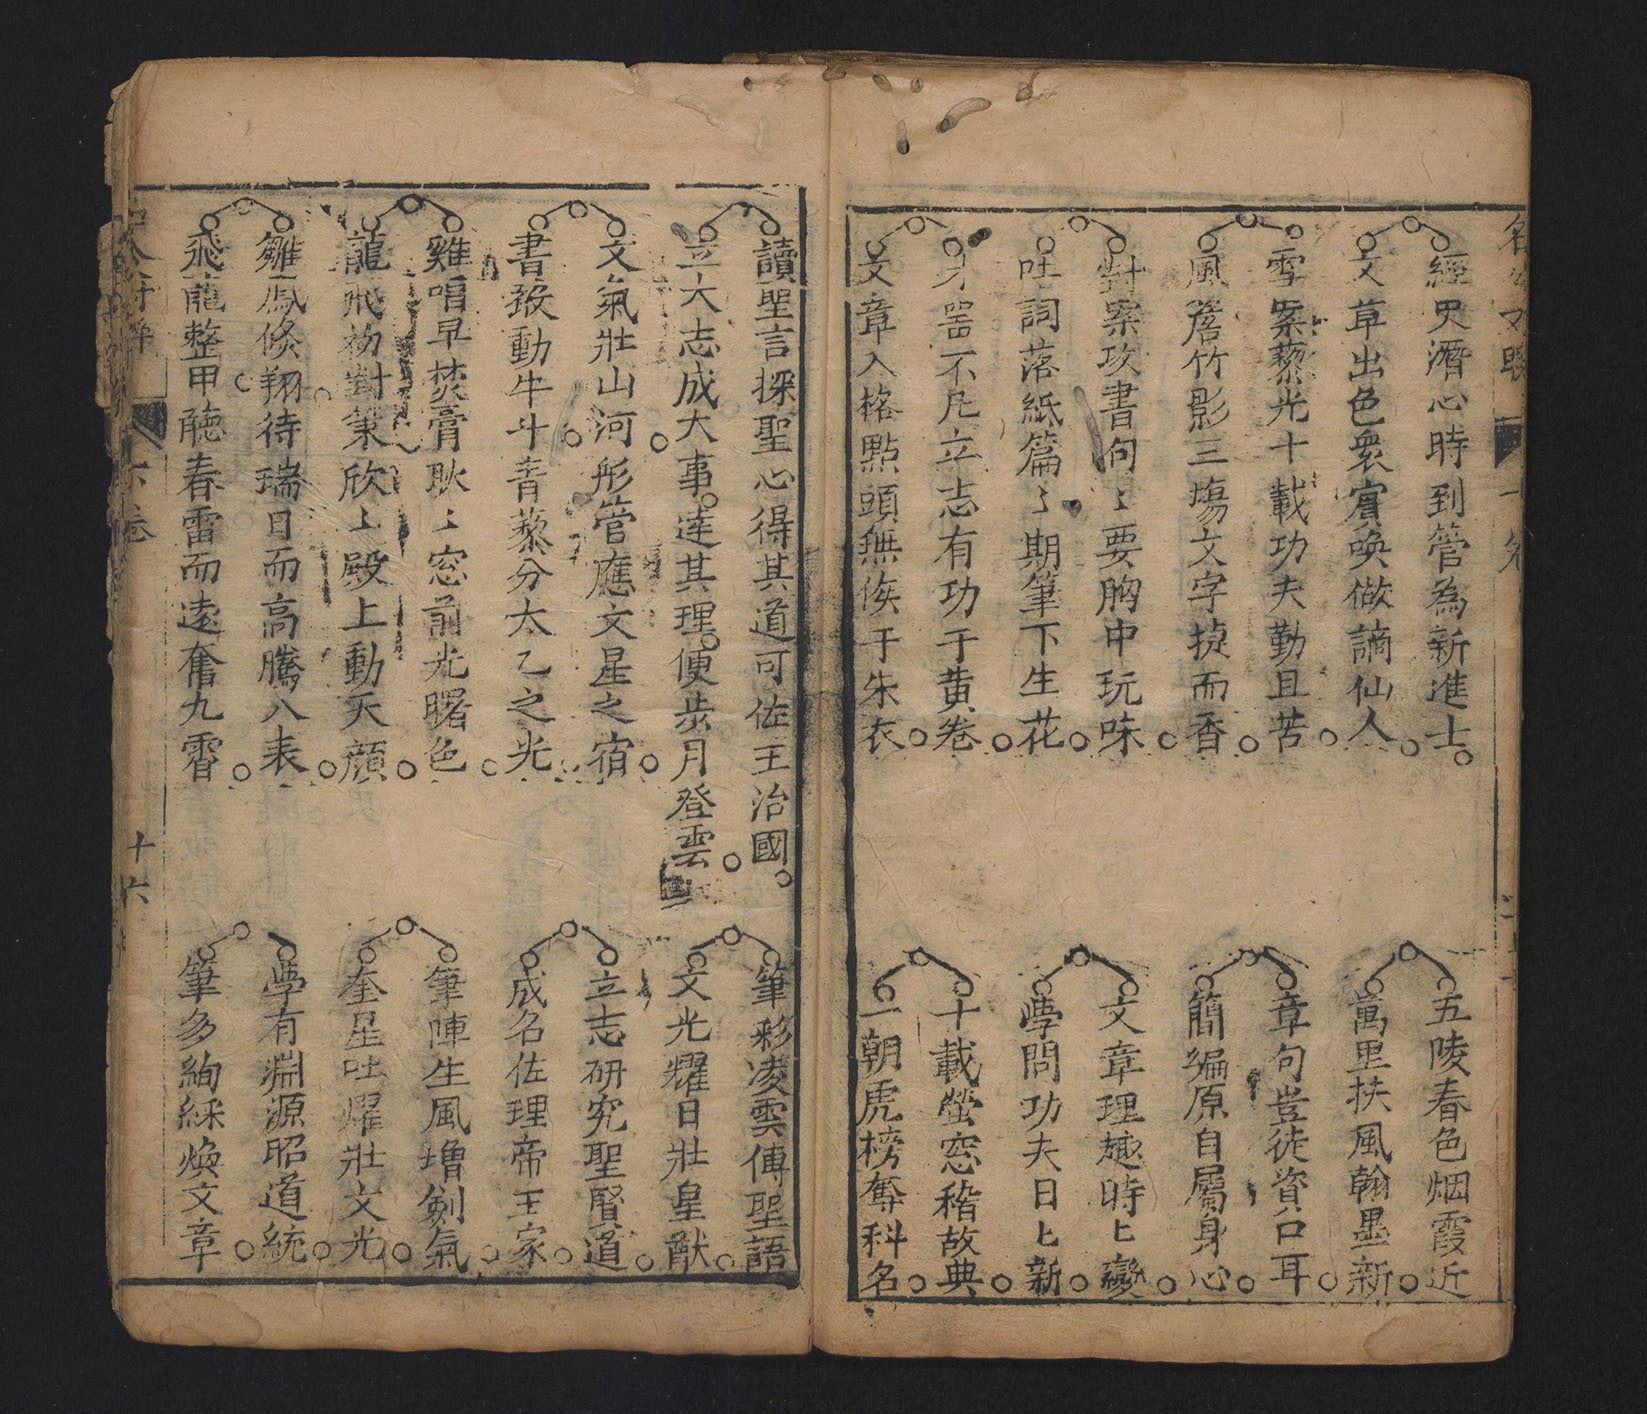 經史潛心時到管為新進士
文草出色衆賓喚做謫仙人
雪案藜光十載功夫勤且苦
風簷竹影三塲文字捷而香
對案攻書句〻要胸中玩味
吐詞落紙篇〻期筆下生花
才噐不凡立志有功于黄卷
文章入格點頭無俟于朱衣
五陵春色烟霞近
萬里扶風翰墨新
章句豈徒資口耳
簡編原自屬身心
文章理趣時〻變
學問功夫日〻新
十載螢窓稽故典
一朝虎榜奪科名
讀聖言探聖心得其道可佐王治國
立大志成大事達其理便步月登雲
文氣壯山河彤管應文星之宿
書致動牛斗青藜分太乙之光
雞唱早焚膏耿〻窓前光曙色
龍飛初對策欣〻殿上動天顔
雛鳳倏翔待瑞日而高騰八表
飛龍整甲聴春雷而遠奮九霄
筆彩凌雲傳聖語
文光耀日壯皇猷
立志研究聖賢道
成名佐理帝王家
筆陣生風增劍氣
奎星吐燿壯文光
學有淵源昭道統
筆多絢綵煥文章
六巻
十六